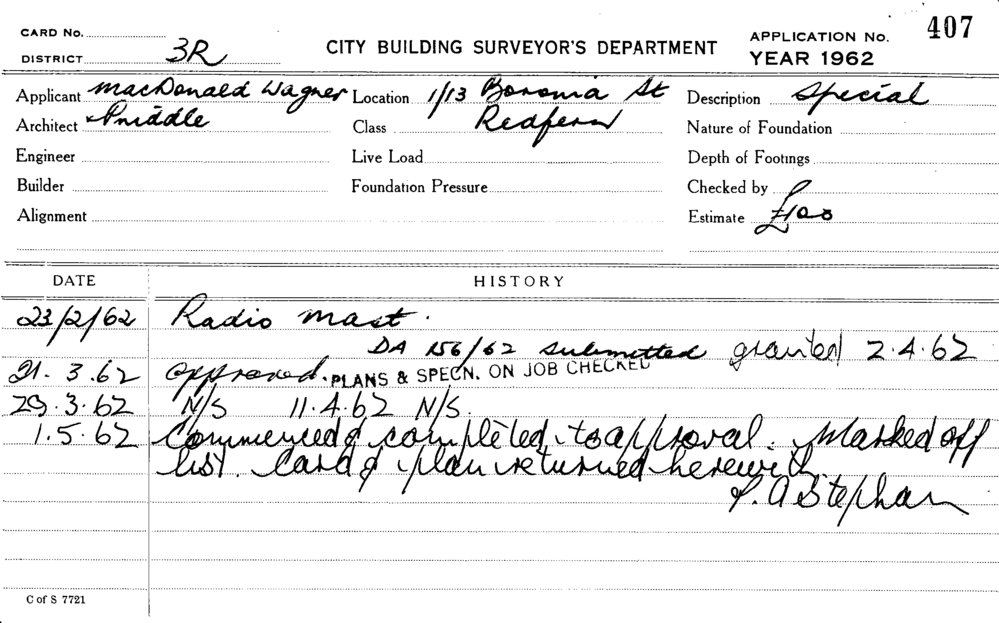 CARD No.
DISTRICT 3R
CITY BUILDING SURVEYOR'S DEPARTMENT
APPLICATION No. 407
YEAR 1962
Applicant MacDonald Wagner Location 1/13 Boronia St Description Special
Architect & Priddle Class Redfern Nature of Foundation
Engineer Live Load Depth of Footings
Builder Foundation Pressure Checked by
Alignment Estimate £100
DATE HISTORY
23/2/62 Radio mast.
DA 156/62 submitted granted 2.4.62
21.3.62 approved. PLANS & SPECN. ON JOB CHECKED
29.3.62 N/S 11.4.62 N/S.
1.5.62 Commenced & completed to approval. Marked off
list. Card & plan returned herewith.
C of S 7721